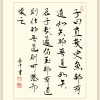 子曰直哉史魚邦有
道如矢邦無道如矢
君子哉蘧伯玉邦有道
則仕邦無道則可卷而
懷之